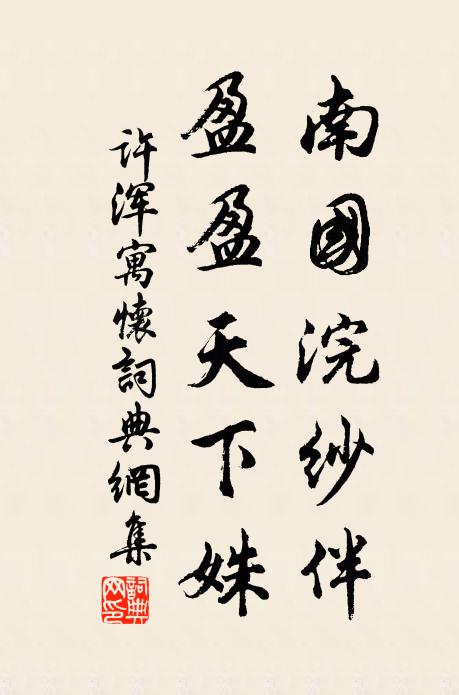 南國浣紗伴
盈盈天下姝
许浑寓懷詞典網集
詞典网印